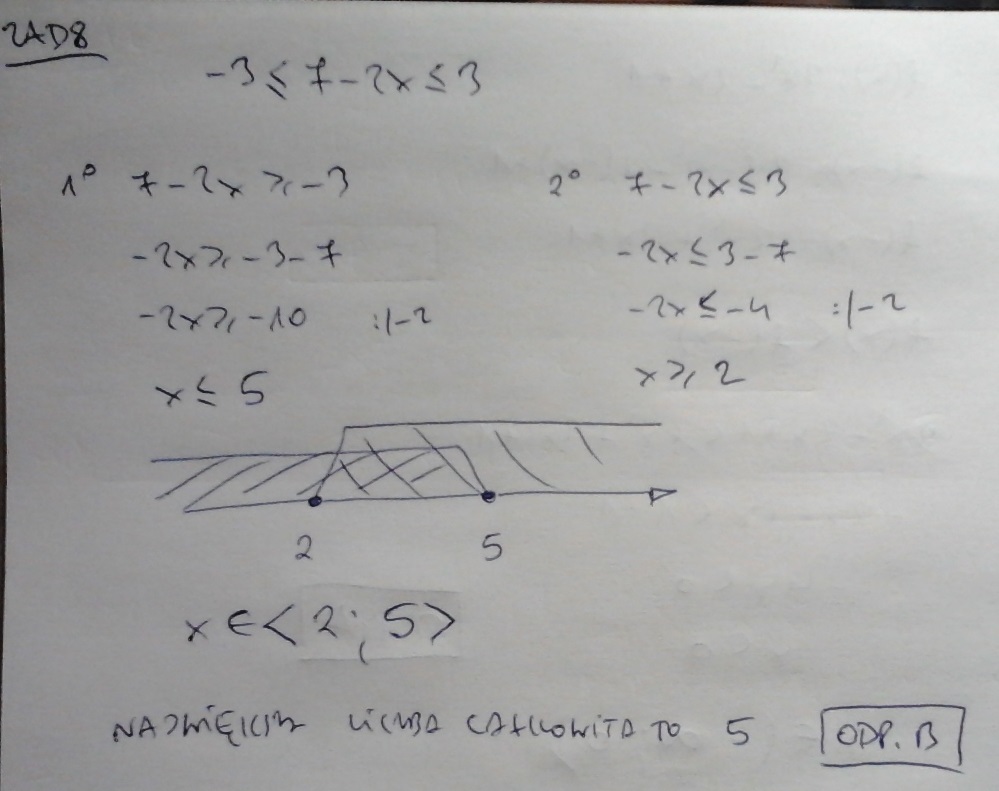 ZAD8
-3 ≤ 7 - 2x ≤ 3
1° 7 - 2x ≥ -3
-2x ≥ -3 - 7
-2x ≥ -10 :/-2
x ≤ 5
2° 7 - 2x ≤ 3
-2x ≤ 3 - 7
-2x ≤ -4 :/-2
x ≥ 2
2 5
x ∈ < 2 ; 5 >
NAJWIĘKSZA LICZBA CAŁKOWITA TO 5 ODP. B